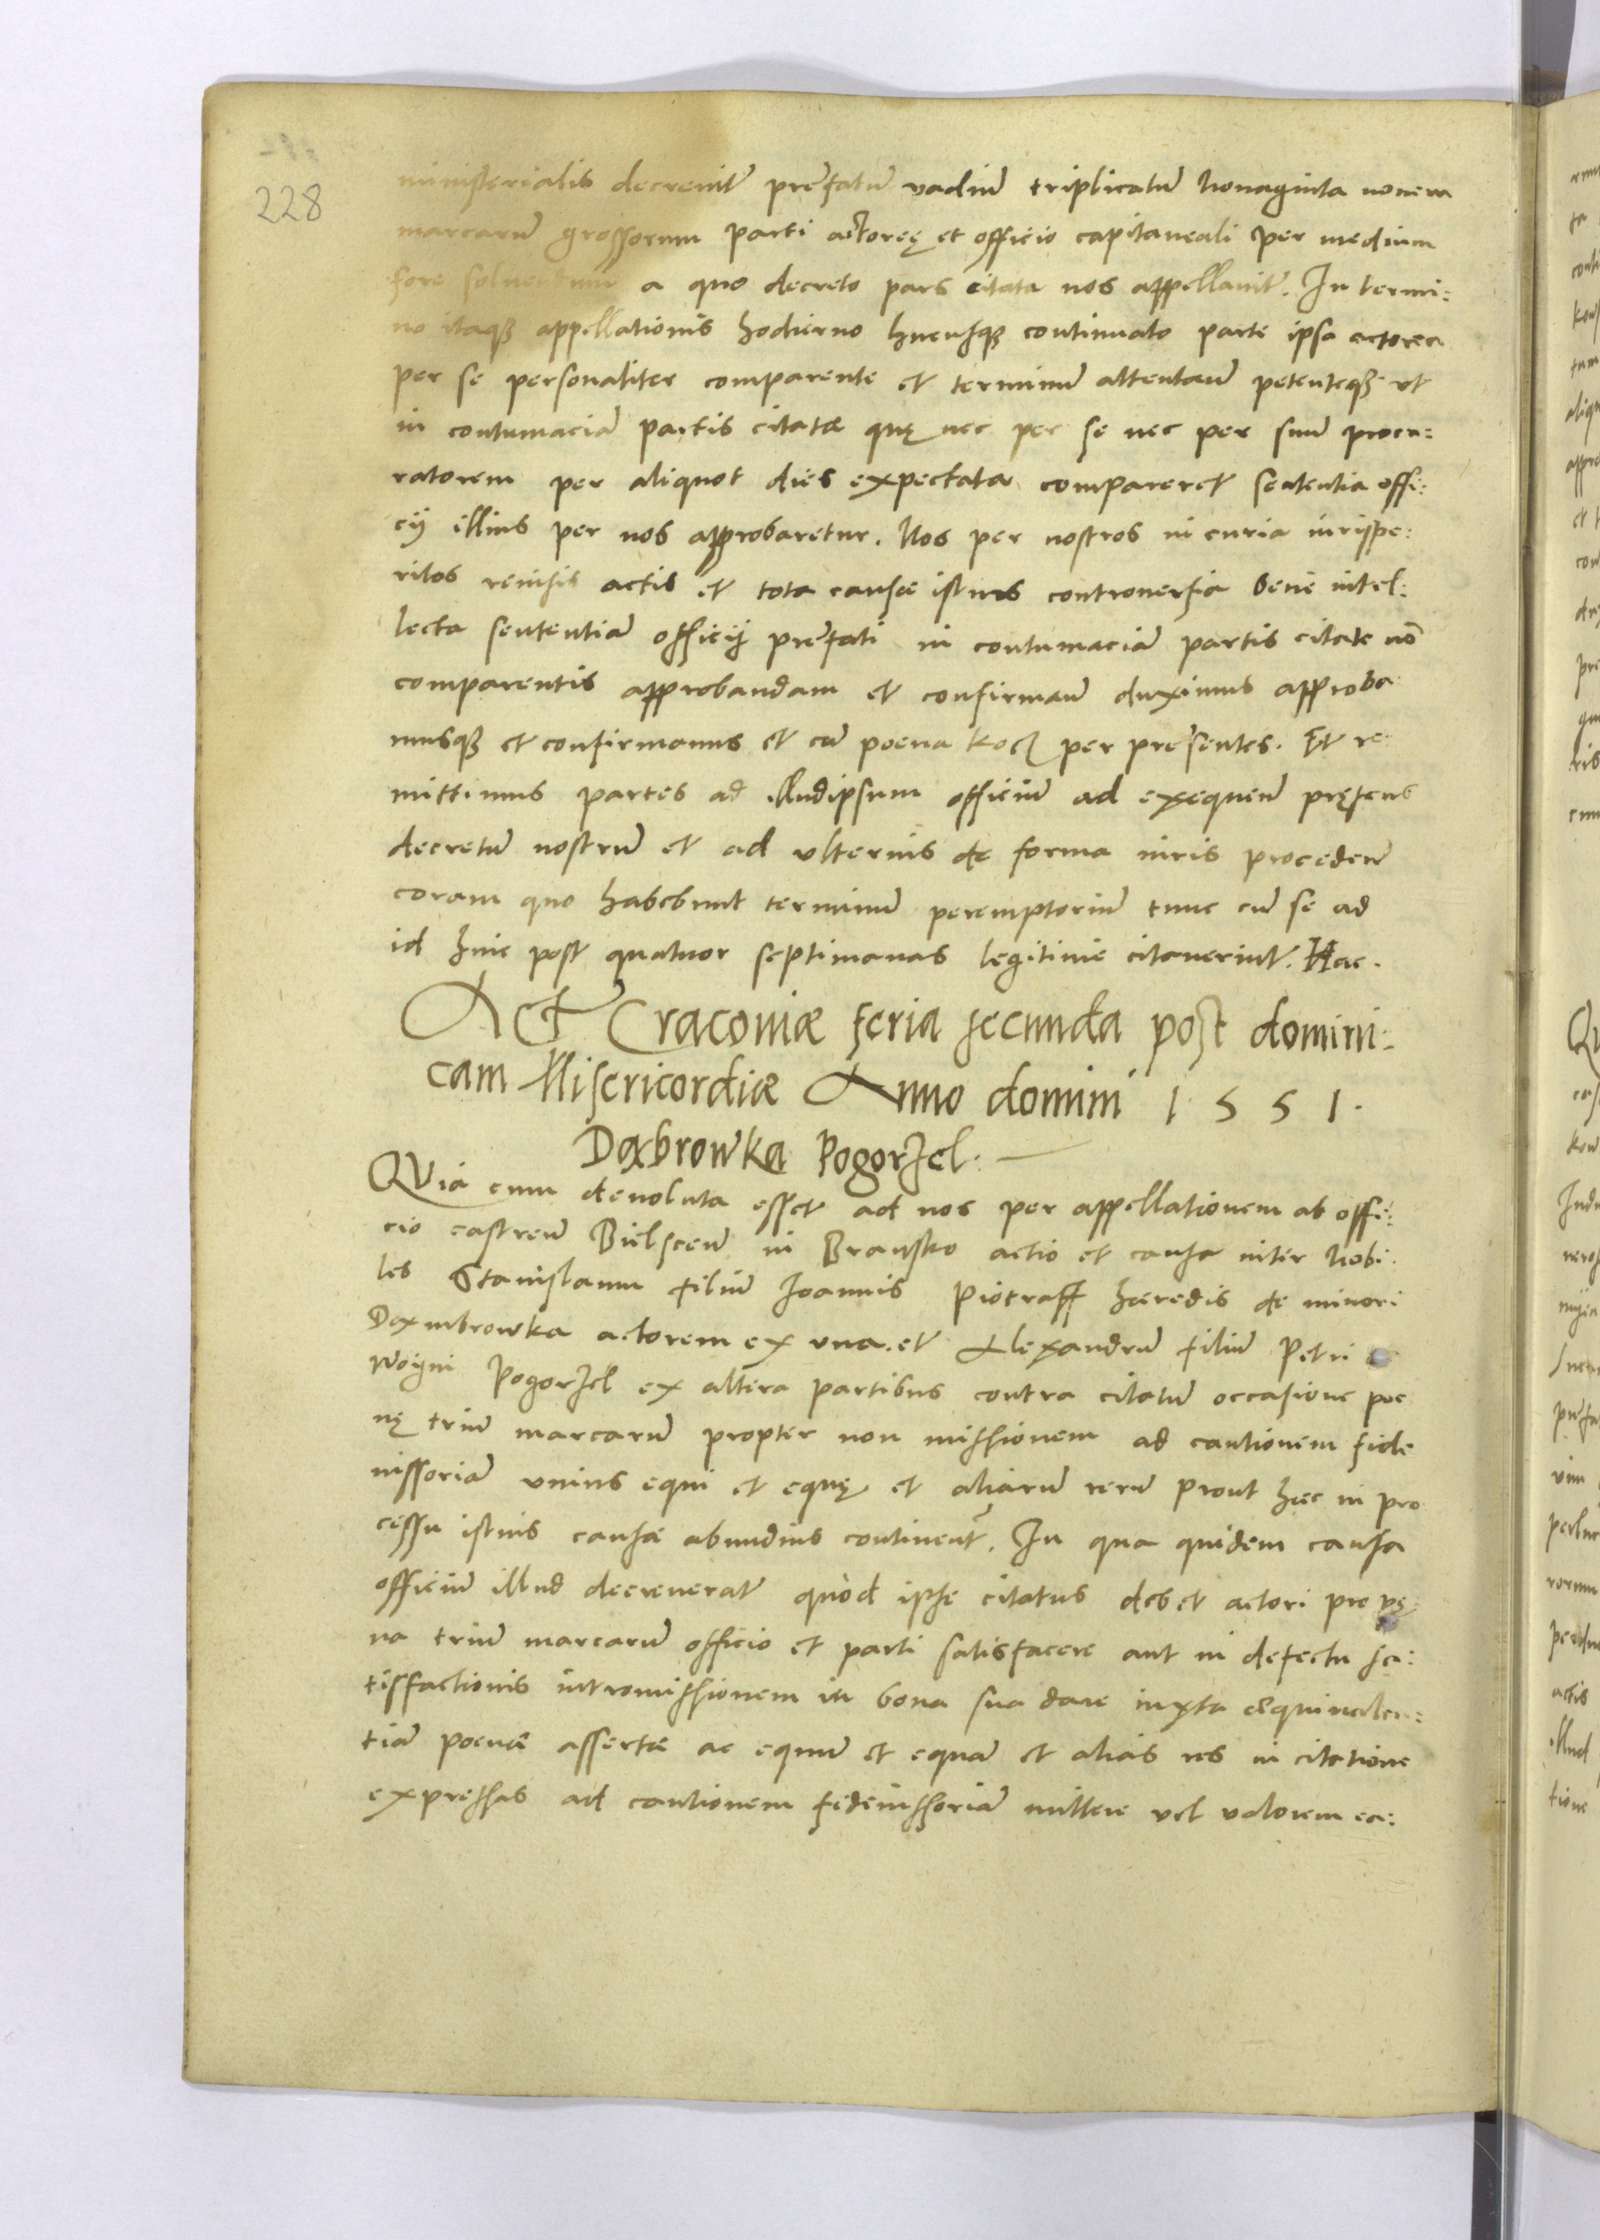 228
ministerialis decrevit prefatum vadium triplicatum Nonaginta novem
marcarum grossorum parti actoreę et officio capitaneali per medium
fore solvendum a quo decreto pars citata nos appellavit. In termi:
no itaqꝫ appellationis hodierno hucusqꝫ continuato parte ipsa actorea
per se personaliter comparente et terminum attentan̄ petenteqꝫ ut
in contumaciā partis citatæ quę nec per se nec per suum procu:
ratorem per aliquot dies expectata compareret sententia offi:
cij illius per nos approbaretur. Nos per nostros in curia iurispe:
ritos revisis actis et tota causæ istius controversia bene intel:
lecta sententiā officij prefati in contumaciā partis citate nō
comparentis approbandam et confirman̄ duximus approba
musqꝫ et confirmamus et cū poena kocz per presentes. Et re:
mittimus partes ad illudipsum officiū ad exequen̄ pręsens
decretū nostrū et ad ulterius de forma iuris proceden̄
coram quo habebunt terminū peremptoriū tunc cū se ad
id hinc post quatuor septimanas legitime citaverint. Hac.
Act Cracoviæ feria secunda post domini:
cam Misericordiæ Anno domini 1551.
Daxbrowka Pogorzel.
Quia cum devoluta esset ad nos per appellationem ab offi:
cio castren̄ Bielscen̄ in Bransko actio et causa inter Nobi:
les Stanislaum filium Joannis Piotraff hæredis de minori
Daxmbrowka actorem ex una. et Alexandrū filiū Petri
Woijni Pogorzel ex altera partibus contra citatū occasione poe
nę triū marcarū propter non missionem ad cautionem fide
iussoriā unius equi et equę et aliarū rerū prout hæc in pro
cessu istius causæ abundius continent̄. In qua quidem causa
officiū illud decreverat quòd ipse citatus debet actori pro pę
na triū marcarū officio et parti satisfacere aut in defectu sa:
tisfactionis intromissionem in bona sua dare iuxta æquivalen:
tiā poenæ assertæ ac equum et equā et alias res in citatione
expressas ad cautionem fideiussoriā mittere vel valorem ea: